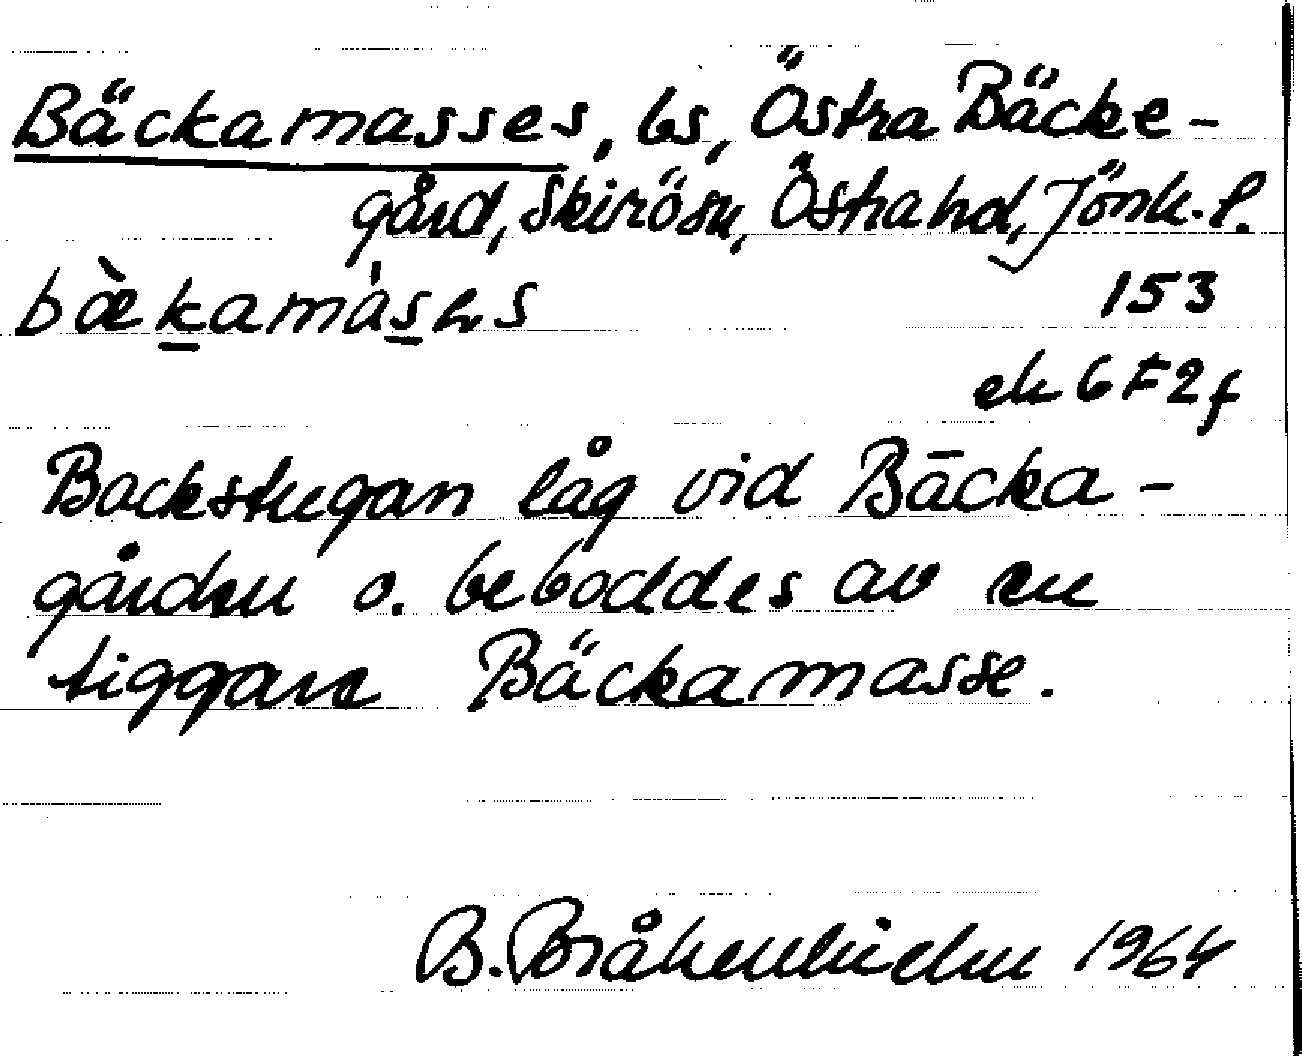 Bäckamasses, bs, Östra Bäcke-
gård, Skirö sn, Östra hd, Jönk. l.
bæ̀kamásəs
153
ek 6F2f
Backstugan låg vid Bäcka-
gården o. beboddes av en
tiggare Bäckamasse.
B. Bråkenhielm 1964